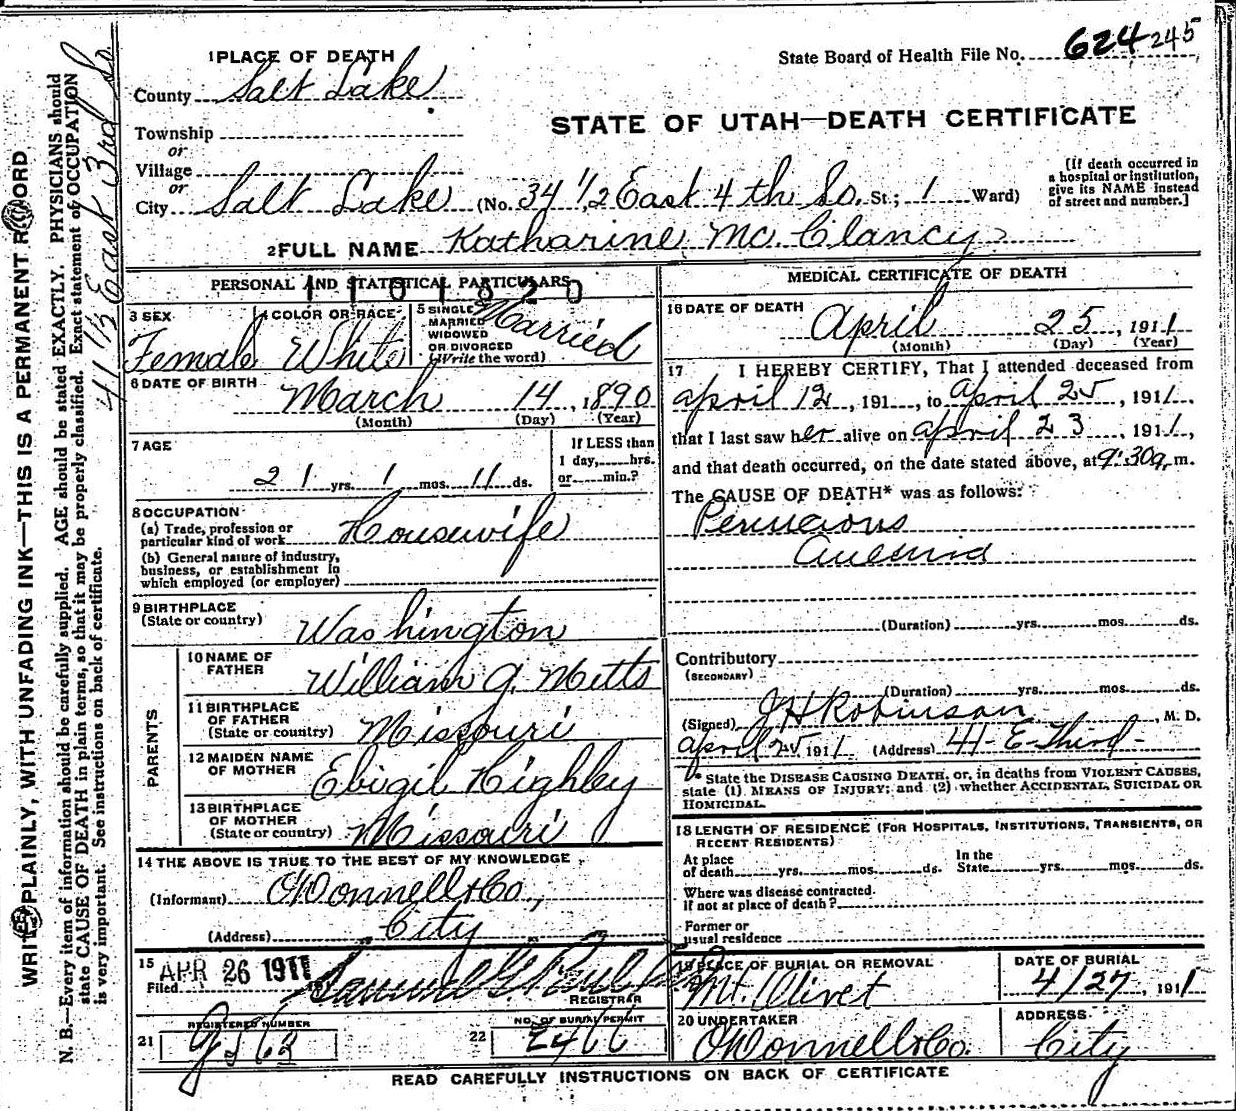 1 PLACE OF DEATH
State Board of Health File No. 624 245
County Salt Lake
STATE OF UTAH—DEATH CERTIFICATE
Township
or
Village
or
City Salt Lake (No. 34 1/2 East 4th So. St.; 1 Ward)
[If death occurred in
a hospital or institution,
give its NAME instead
of street and number.]
2 FULL NAME Katharine Mc. Clancy
PERSONAL AND STATISTICAL PARTICULARS
1101820
3 SEX
Female
4 COLOR OR RACE
White
5 SINGLE
MARRIED
WIDOWED
OR DIVORCED
(Write the word)
Married
6 DATE OF BIRTH
March 14, 1890
(Month) (Day) (Year)
7 AGE
21 yrs. 1 mos. 11 ds.
If LESS than
1 day,......hrs.
or......min.?
8 OCCUPATION
(a) Trade, profession or
particular kind of work Housewife
(b) General nature of industry,
business, or establishment in
which employed (or employer)
9 BIRTHPLACE
(State or country)
Washington
PARENTS
10 NAME OF
FATHER
William G. Metts
11 BIRTHPLACE
OF FATHER
(State or country)
Missouri
12 MAIDEN NAME
OF MOTHER
Ebigil Highley
13 BIRTHPLACE
OF MOTHER
(State or country)
Missouri
14 THE ABOVE IS TRUE TO THE BEST OF MY KNOWLEDGE
(Informant) O'Donnell & Co.,
(Address) City
15
Filed APR 26 1911
Samuel G. Paul
REGISTRAR
21 REGISTERED NUMBER
22 NO. OF BURIAL PERMIT
2466
MEDICAL CERTIFICATE OF DEATH
16 DATE OF DEATH
April 25, 1911
(Month) (Day) (Year)
17 I HEREBY CERTIFY, That I attended deceased from
April 12, 191, to April 25, 1911,
that I last saw her alive on April 23, 1911,
and that death occurred, on the date stated above, at 9:30 a. m.
The CAUSE OF DEATH* was as follows:
Pernicious
Anemia
(Duration) yrs. mos. ds.
Contributory
(SECONDARY)
(Duration) yrs. mos. ds.
(Signed) J H Robinson, M. D.
April 25 1911 (Address) 41- E-Third-
* State the DISEASE CAUSING DEATH, or, in deaths from VIOLENT CAUSES,
state (1) MEANS OF INJURY; and (2) whether ACCIDENTAL, SUICIDAL OR
HOMICIDAL.
18 LENGTH OF RESIDENCE (FOR HOSPITALS, INSTITUTIONS, TRANSIENTS, OR
RECENT RESIDENTS)
At place
of death yrs. mos. ds.
In the
State yrs. mos. ds.
Where was disease contracted
if not at place of death?
Former or
usual residence
19 PLACE OF BURIAL OR REMOVAL
Mt. Olivet
DATE OF BURIAL
4/27, 1911
20 UNDERTAKER
O'Donnell & Co.
ADDRESS
City
READ CAREFULLY INSTRUCTIONS ON BACK OF CERTIFICATE
WRITE PLAINLY, WITH UNFADING INK—THIS IS A PERMANENT RECORD
N. B.—Every item of information should be carefully supplied. AGE should be stated EXACTLY. PHYSICIANS should
state CAUSE OF DEATH in plain terms, so that it may be properly classified. Exact statement of OCCUPATION
is very important. See instructions on back of certificate.
41 1/2 East 3rd So.